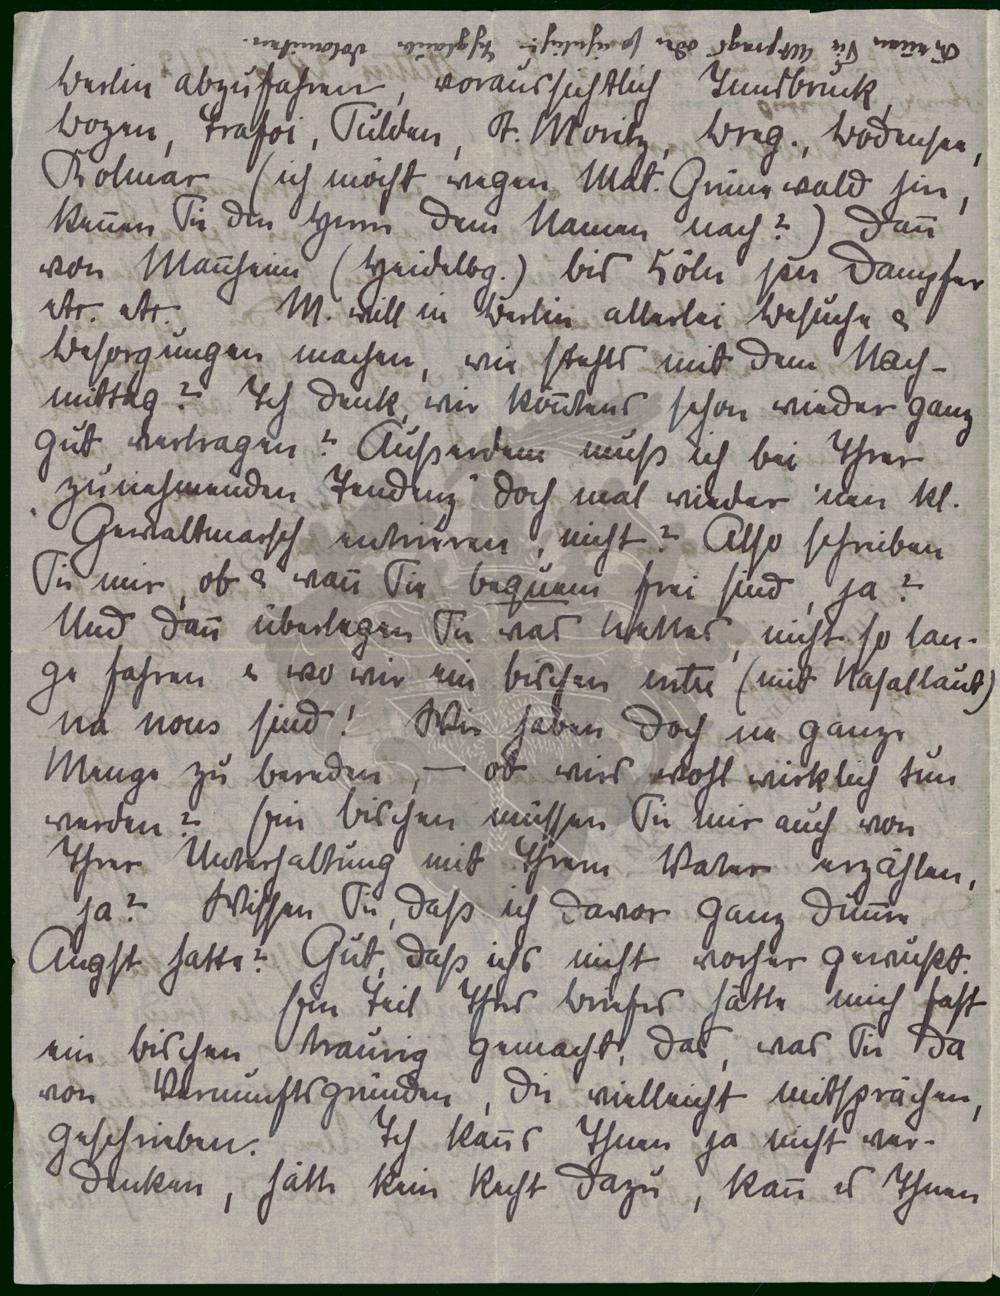 Berlin abzufahren, voraussichtlich Innsbruck,
Bozen, Trafoi, Sulden, St. Moritz, Breg., Bodensee,
Kolmar (ich möcht wegen Mat. Grünewald hin,
kennen Sie den Herrn dem Namen nach?) Dann
von Mannheim (Heidelbg.) bis Cöln per Dampfer
etc. etc. M. will in Berlin allerlei Besuche &
Besorgungen machen, wie stehts mit dem Nach-
mittag? Ich denk, wir könntens schon wieder ganz
gut vertragen? Außerdem muß ich bei Ihrer
"zunehmenden Tendenz" doch mal wieder 'nen kl.
Gewaltmarsch entrieren, nicht? Also schreiben
Sie mir, ob & wann Sie bequem frei sind, ja?
Und dann überlegen Sie was Nettes, nicht so lan-
ge fahren & wo wir ein bischen entre (mit Nasallaut)
na nous sind! Wir haben doch ne ganze
Menge zu bereden, — ob wirs wohl wirklich tun
werden? Ein bischen müssen Sie mir auch von
Ihrer Unterhaltung mit Ihrem Vater erzählen,
ja? Wissen Sie, daß ich davor ganz dumme
Angst hatte? Gut, daß ichs nicht vorher gewußt.
Ein Teil Ihres Briefes hätte mich fast
ein bischen traurig gemacht, das, was Sie da
von Vernunftsgründen, die vielleicht mitsprächen,
geschrieben. Ich kanns Ihnen ja nicht ver-
denken, hätte kein Recht dazu, kann es Ihnen